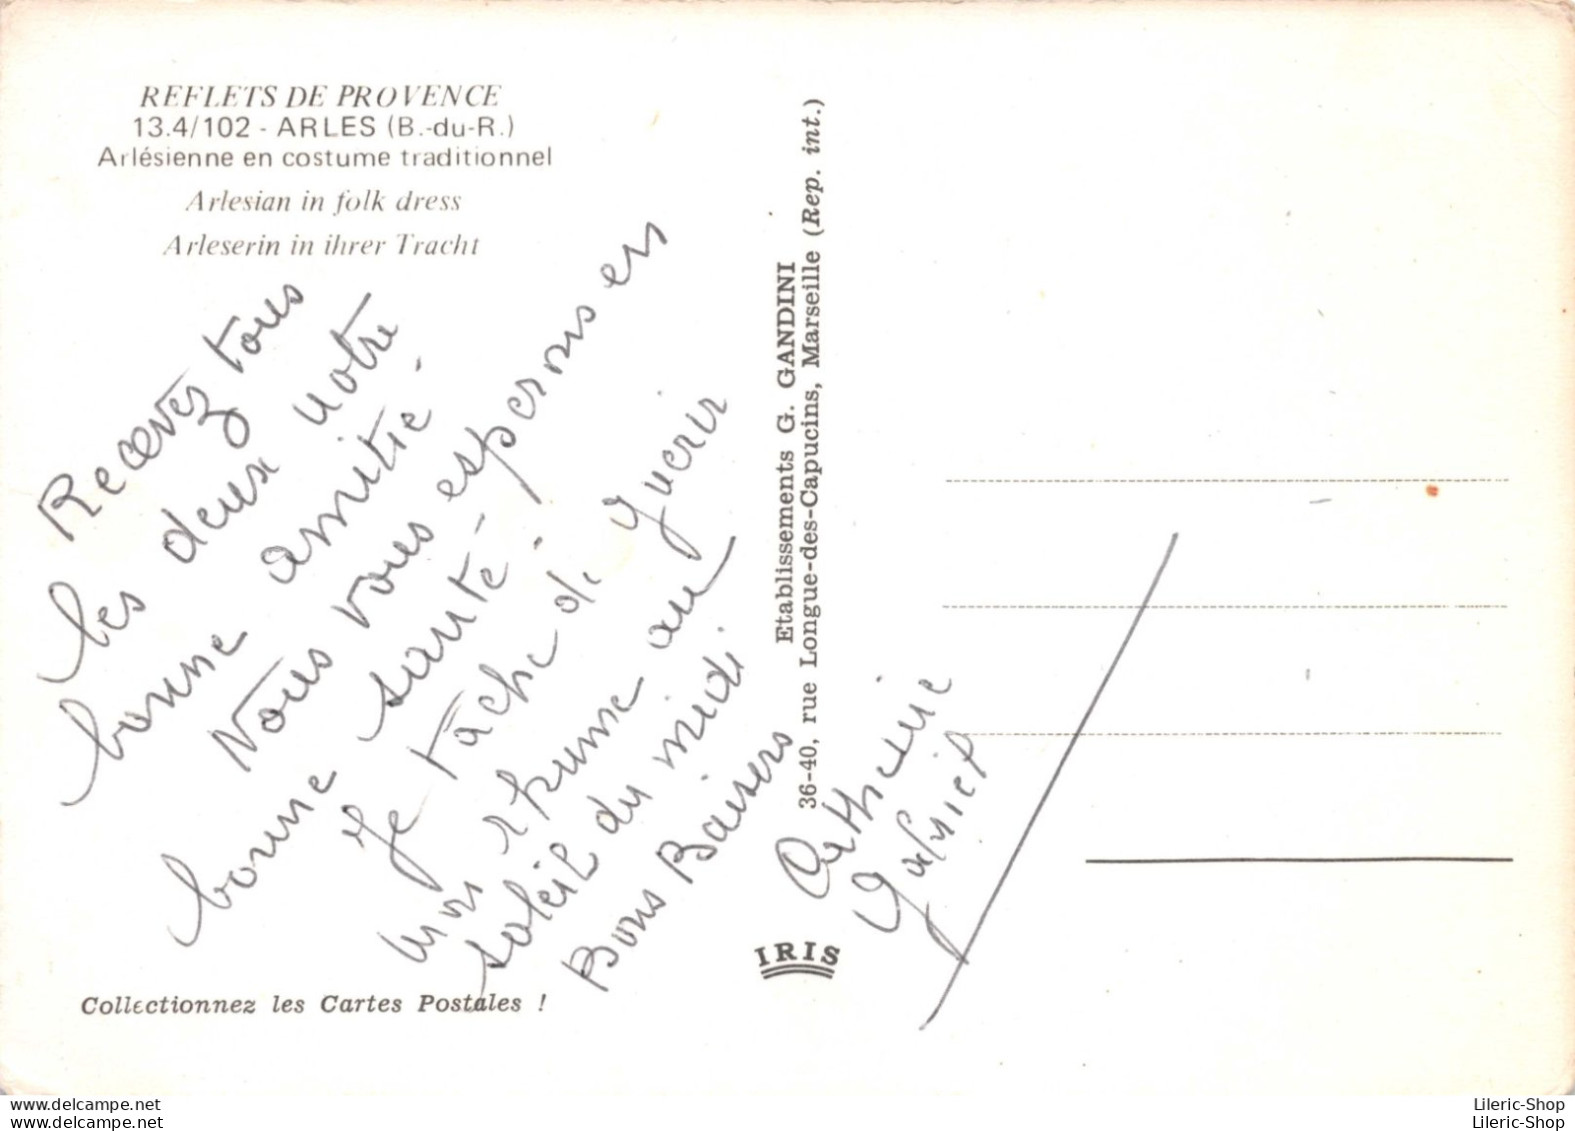 REFLETS DE PROVENCE
13.4/102 - ARLES (B.-du-R.)
Arlésienne en costume traditionnel
Arlesian in folk dress
Arleserin in ihrer Tracht
Recevez tous
les deux notre
bonne amitié.
Nous vous esperons en
bonne santé.
Je tache de guerir
mon rhume au
soleil du midi
Bons Baisers
Catherine
Etablissements G. GANDINI
36-40, rue Longue-des-Capucins, Marseille (Rep. int.)
IRIS
Collectionnez les Cartes Postales !
www.delcampe.net
www.delcampe.net
Lileric-Shop
Lileric-Shop